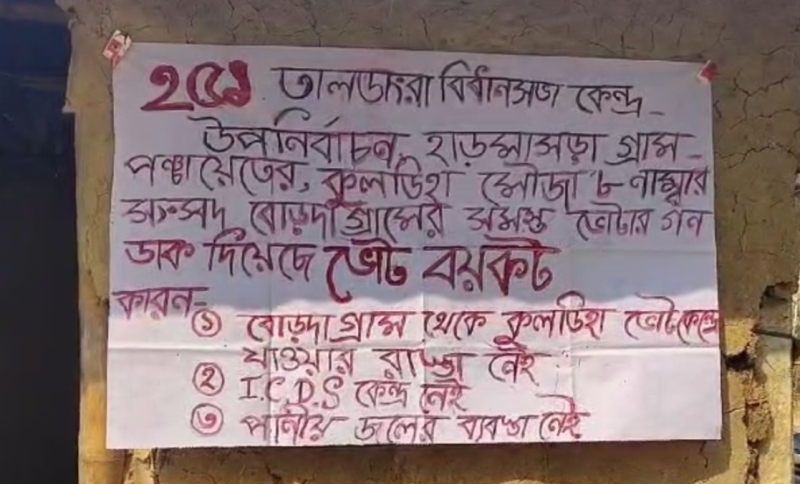 ২৫১ তালডাংরা বিধানসভা কেন্দ্র -
উপনির্বাচন, হাড়মাসড়া গ্রাম -
পঞ্চায়েতের, কুলডিহা মৌজা ৮ নাম্বার
সংসদ বোড়দা গ্রামের সমস্ত ভোটার গন
ডাক দিয়েছে ভোট বয়কট
কারন-
① বোড়দা গ্রাম থেকে কুলডিহা ভোট কেন্দ্রে
যাওয়ার রাস্তা নেই
② I.C.D.S কেন্দ্র নেই
৩ পানীয় জলের ব্যবস্থা নেই